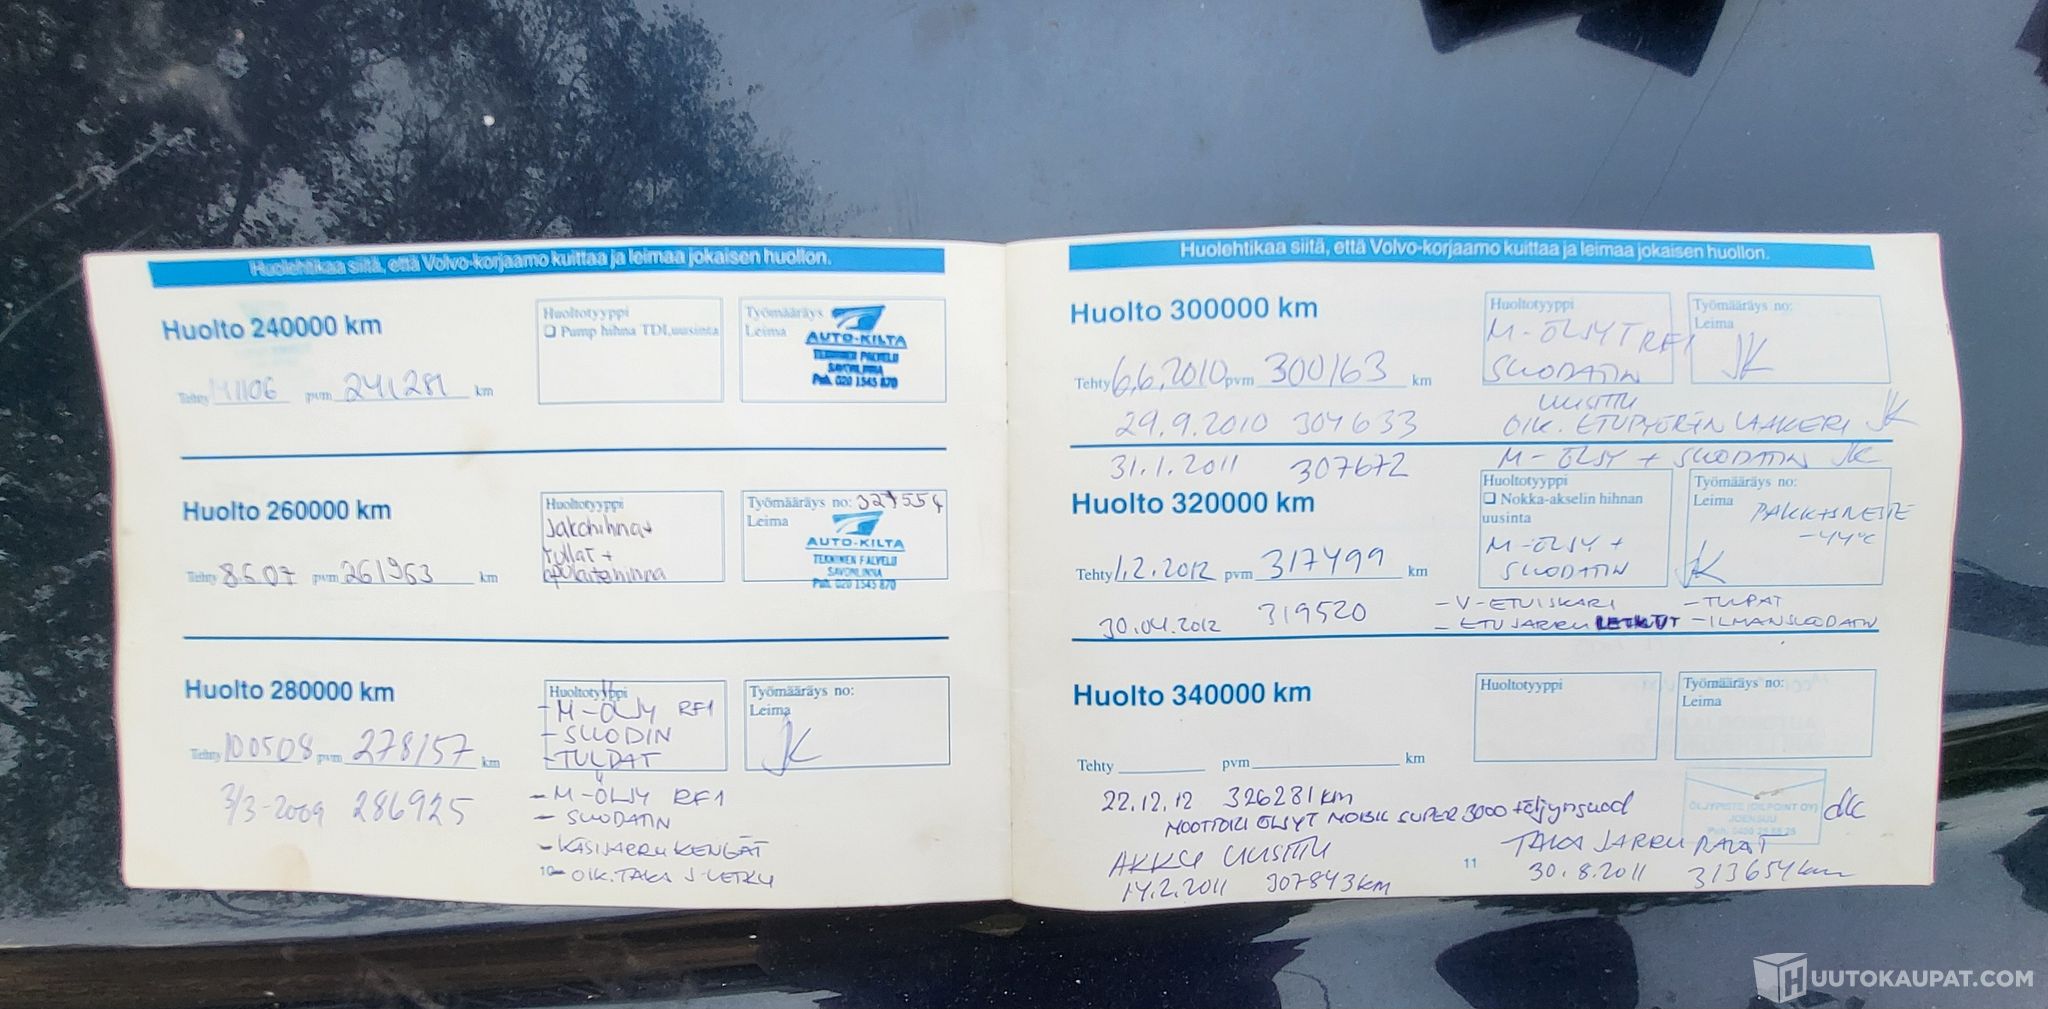 Huolehtikaa siitä, että Volvo-korjaamo kuittaa ja leimaa jokaisen huollon.
Huolto 240000 km
Huoltotyyppi
❑ Pump hihna TDI, uusinta
Työmääräys
Leima
AUTO-KILTA
TEKNINEN PALVELU
SAVONLINNA
Puh. 020 1545 870
Tehty pvm 241281 km
Huolto 260000 km
Huoltotyyppi
Jakohihna+
rullat +
apulaitehihna
Työmääräys no: 327554
Leima
AUTO-KILTA
TEKNINEN PALVELU
SAVONLINNA
Puh. 020 1545 870
Tehty 8.6.07 pvm 261963 km
Huolto 280000 km
Huoltotyyppi
- M-ÖLJY RF1
- SUODIN
- TULPAT
Työmääräys no:
Leima
JK
Tehty 100508 pvm 278157 km
3/3-2009 286925
- M-ÖLJY RF1
- SUODATIN
- KÄSIJARRUKENGÄT
- OIK. TAKA J-LETKU
10
Huolehtikaa siitä, että Volvo-korjaamo kuittaa ja leimaa jokaisen huollon.
Huolto 300000 km
Huoltotyyppi
M-ÖLJYT RF1
SUODATIN
UUSITTU
Työmääräys no:
Leima
JK
Tehty 6.6.2010 pvm 300163 km
29.9.2010 304633 OIK. ETUPYÖRÄN LAAKERI JK
31.1.2011 307672 M-ÖLJY + SUODATIN JK
Huolto 320000 km
Huoltotyyppi
❑ Nokka-akselin hihnan
uusinta
M-ÖLJY +
SUODATIN
Työmääräys no:
Leima
PAKKASNESTE
-44°C
JK
Tehty 1.2.2012 pvm 317499 km
30.04.2012 319520
- V-ETUISKARI - TULPAT
- ETUJARRU LETKUT - ILMANSUODATIN
Huolto 340000 km
Huoltotyyppi
Työmääräys no:
Leima
Tehty pvm km
22.12.12 326281 km
MOOTTORI ÖLJYT MOBIL SUPER 3000 + öljynsuod
ÖLJYPISTE (OILPOINT OY)
JOENSUU
JK
AKKU UUSITTU
14.2.2011 307843 km
TAKA JARRU PALAT
30.8.2011 313654 km
11
HUUTOKAUPAT.COM